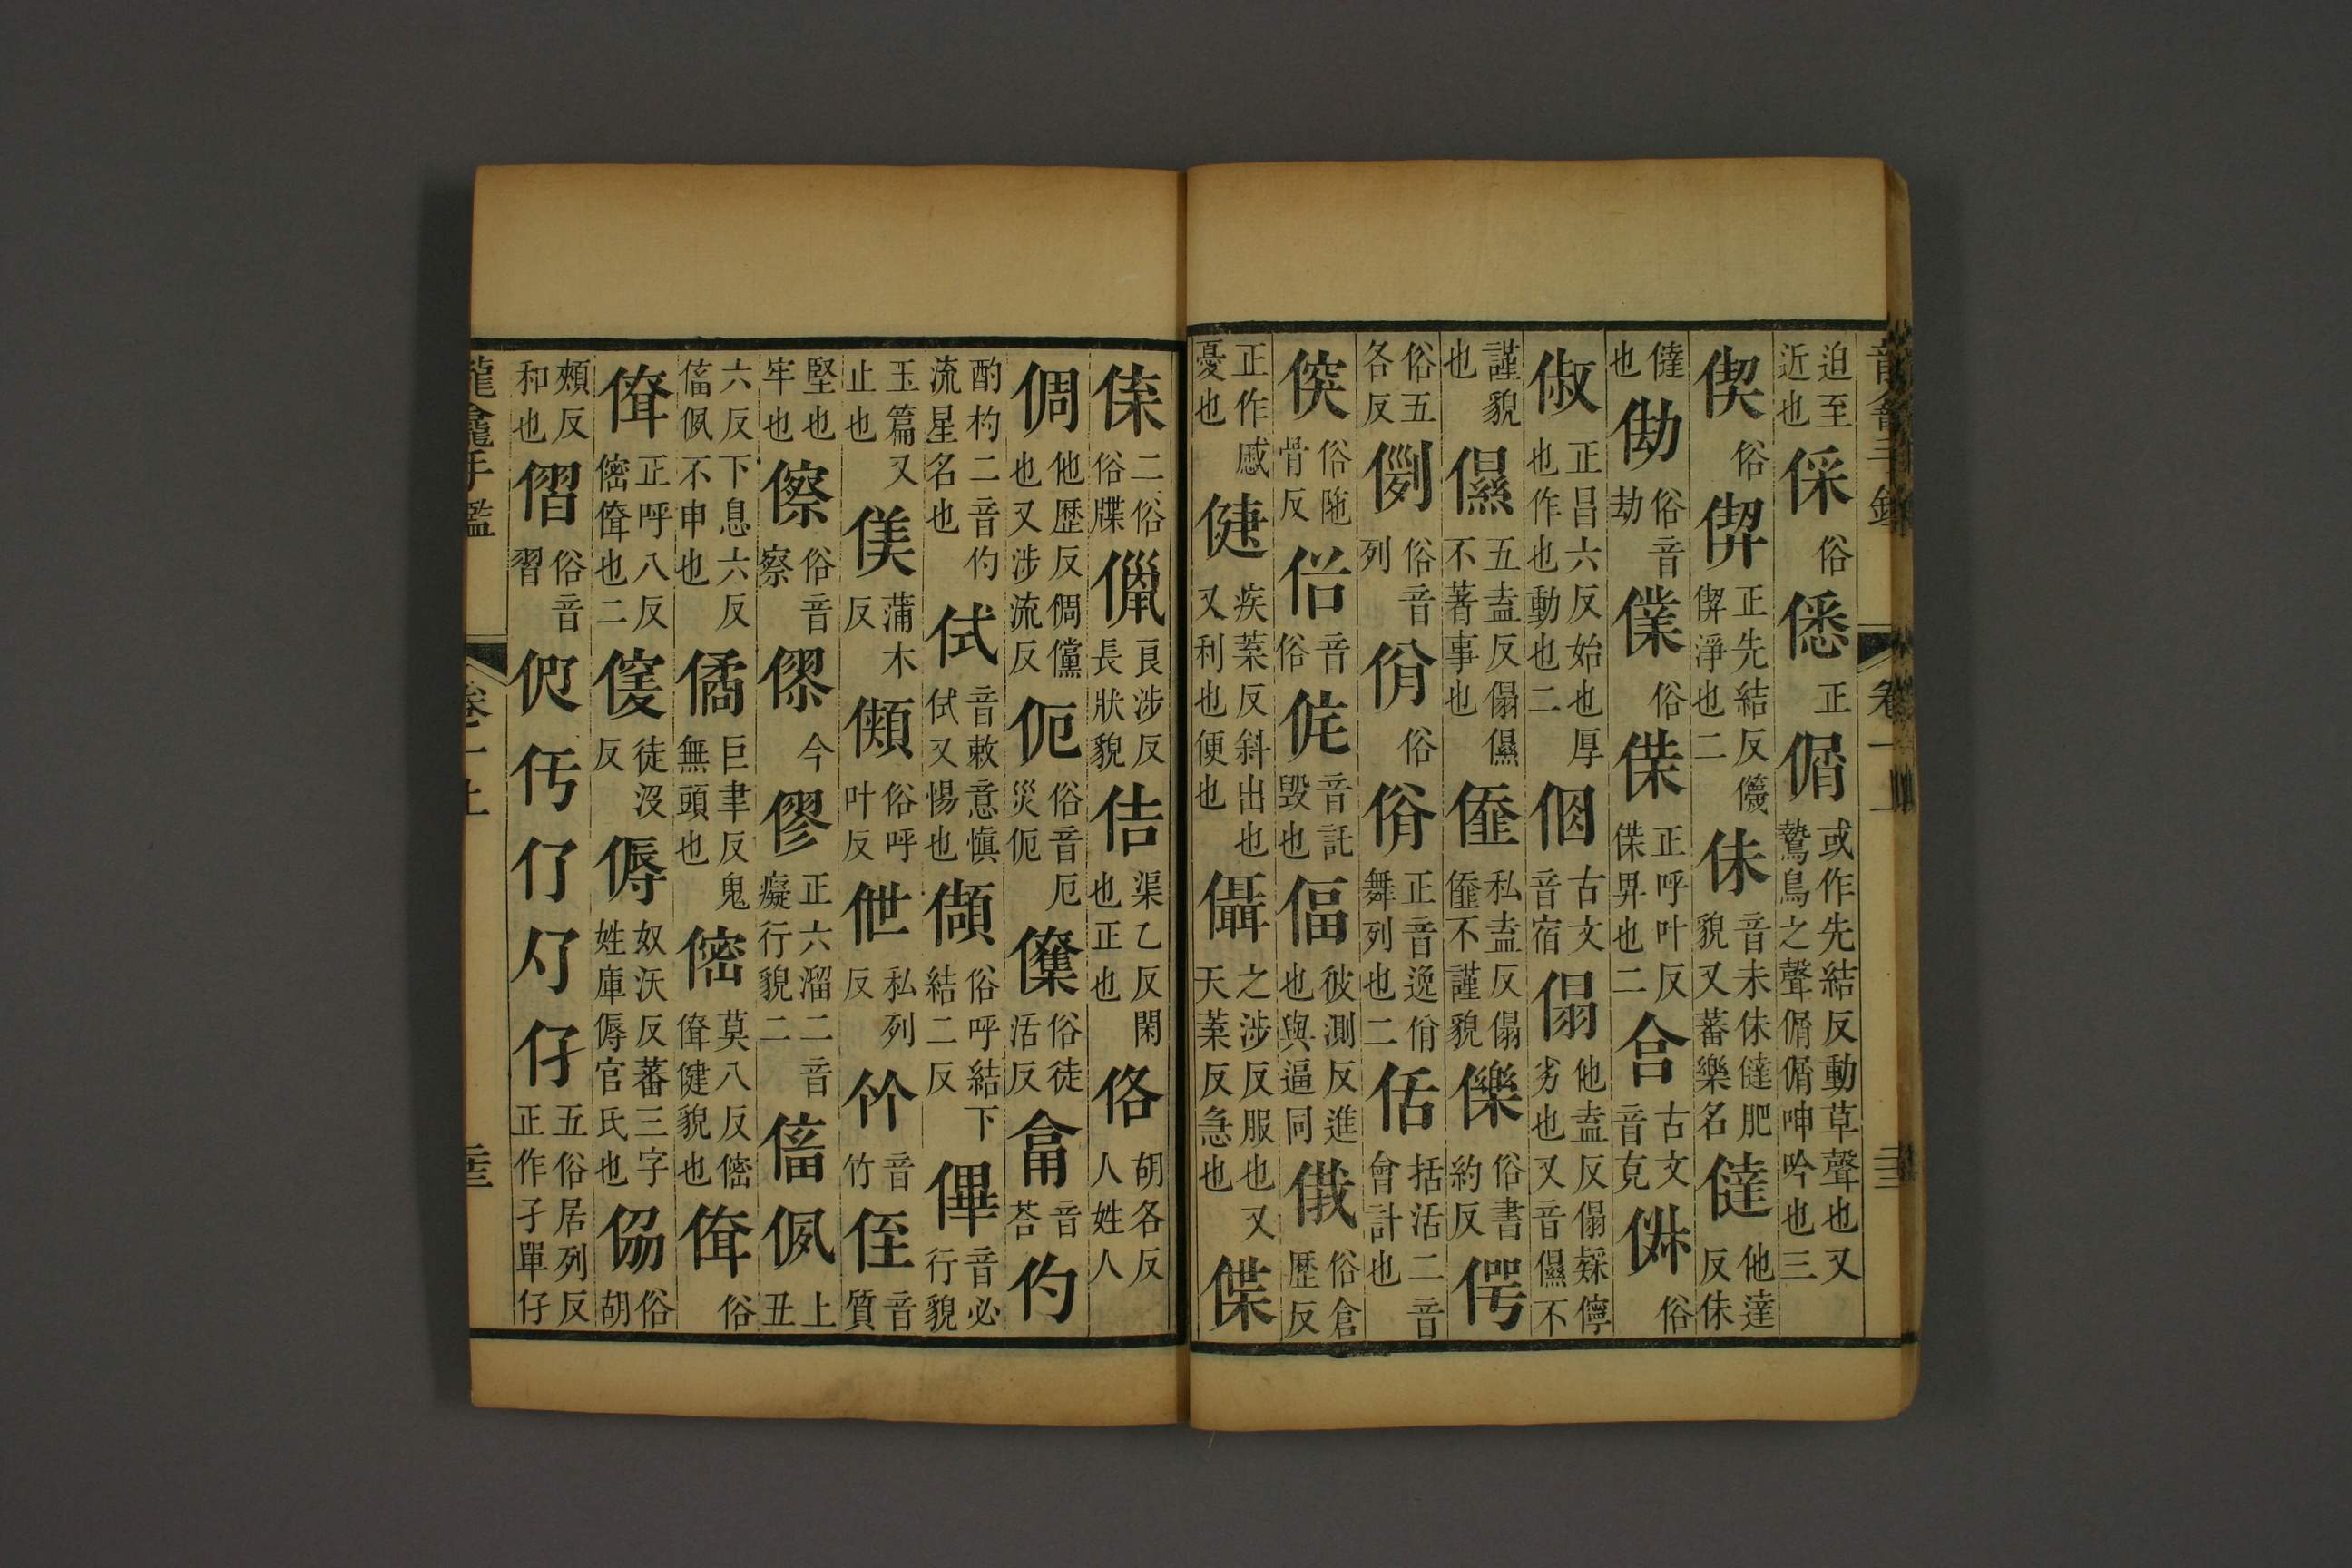 迫至近也 俢 俗 僁 正 偦 或作先結反動草聲也又鷙鳥之聲偦偦呻吟也三
偰 俗 偰 正先結反僟偰淨也二 佅 音未佅㒓肥貌又蕃樂名 㒓 他達反佅
㒓也 㔘 俗音劫 僷 俗 偞 正呼叶反偞昇也二 㑹 古文音克 㑣 俗
俶 正昌六反始也厚也作也動也二 㑉 古文音宿 傝 他盍反傝𠎷儜劣也又音儑不
謹貌也 儑 五盍反傝儑不著事也 㒎 私盍反傝㒎不謹貌 㒧 俗書約反 偔
俗五各反 㑠 俗音列 佾 俗 佾 正音逸佾舞列也二 佸 括活二音會計也
㑌 俗陁骨反 俗音 侂 音託毀也 偪 彼測反進也與逼同 俄 俗倉歷反
正作慼憂也 倢 疾葉反斜出也又利也便也 㒤 之涉反服也又天葉反急也 偞
傣 二俗俗牒 儠 良涉反長狀貌 佶 渠乙反閑也正也 佫 胡各反人姓人
倜 他歷反倜儻也又涉流反 㐵 俗音厄災㐵 俗徒活反 㑽 音荅 仢
酌杓二音仢流星名也 侙 音敕意慎侙又惕也 俗呼結下結二反 㓖 音必行貌
玉篇又止也 僕 蒲木反 俗呼叶反 伳 私列反 㐰 音竹 侄 音質
堅也牢也 傺 俗音察 僇 今 僇 正六溜二音癡行貌二 傗 㑉 上丑
六反下息六反傗㑉不申也 僪 巨聿反鬼無頭也 㒝 莫八反㒝偗健貌也 俗
正呼八反㒝偗也二 徒沒反 傉 奴沃反蕃三字姓庫傉官氏也 㑡 俗胡
頰反和也 㒅 俗音習 伢 仃 仔 五俗居列反正作孑單仔
龍龕手鑑 卷一上